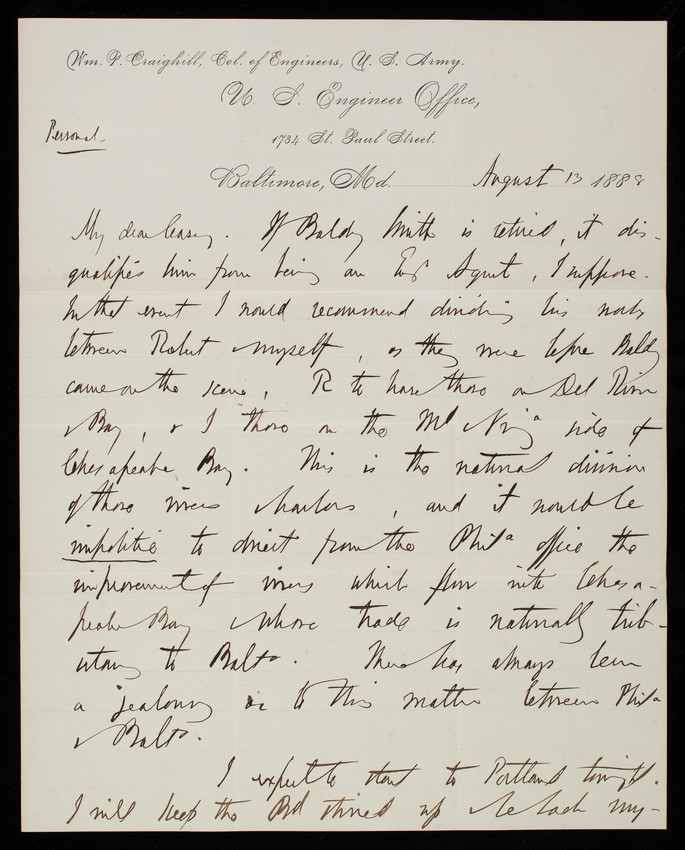 Wm. P. Craighill, Col. of Engineers, U. S. Army.
U. S. Engineer Office,
Personal.
1734 St. Paul Street.
Baltimore, Md. August 13 1888
My dear Casey. If Baldy Smith is retired, it dis-
qualifies him from being an Eng Agent, I suppose.
In that event I would recommend dividing his work
between Robert & myself, as they were before Baldy
came on the scene, R to have those on Del River
& Bay, & I those on the Md & Virga side of
Chesapeake Bay. This is the natural division
of those rivers & harbors, and it would be
impolitic to direct from the Phila office the
improvement of rivers which flow into Chesa-
peake Bay & whose trade is naturally trib-
utary to Balto. There has always been
a jealousy as to this matter between Phila
& Balto.
I expect to start to Portland tonight.
I will keep the Bd stirred up & be back my-